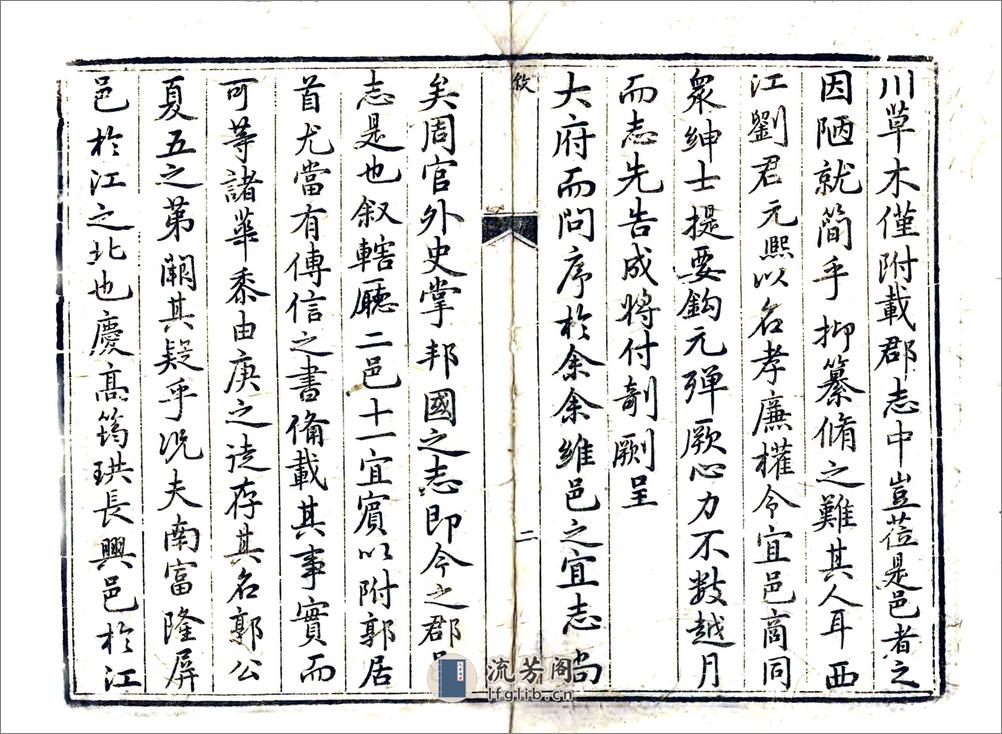 川草木僅附載郡志中豈莅是邑者之
因陋就簡乎抑纂脩之難其人耳西
江劉君元熙以名孝廉權令宜邑商同
眾紳士提要鈎元殫厥心力不數越月
而志先告成將付剞劂呈
大府而問序於余余維邑之宜志尚
敘
二
矣周官外史掌邦國之志即今之郡
志是也叙轄廳二邑十一宜賓以附郭居
首尤當有傳信之書備載其事實而
可等諸華黍由庚之徒存其名郭公
夏五之第闕其疑乎況夫南富隆屏
邑於江之北也慶高筠珙長興邑於江
流芳阁
lfglib.cn